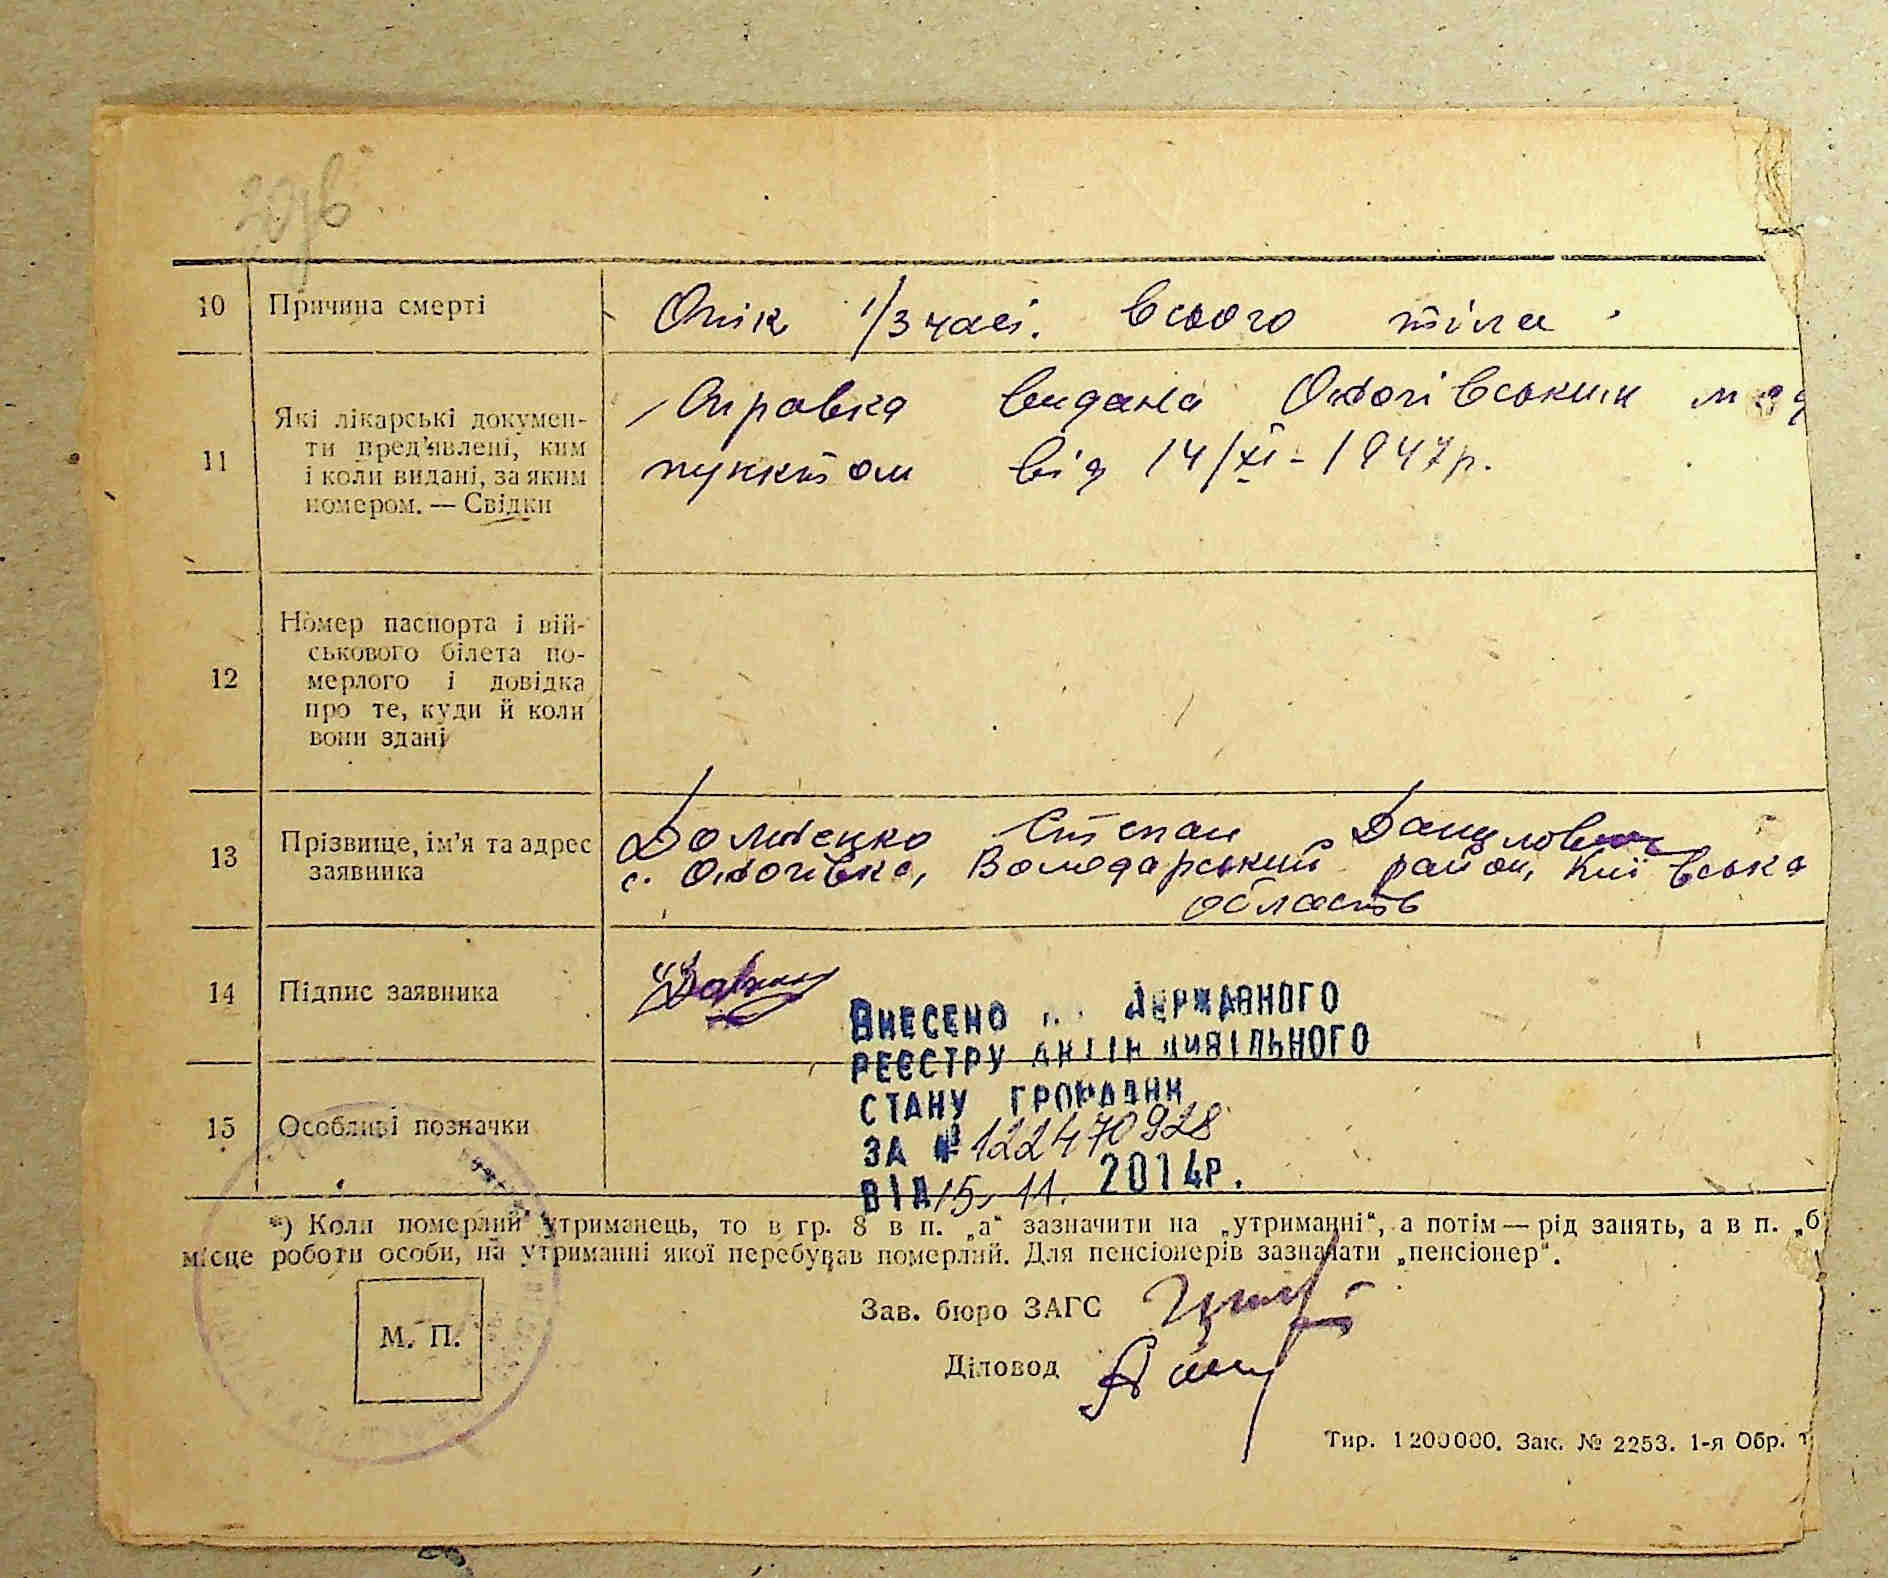 10 Причина смерті Опік 1/3 част. всього тіла
11 Які лікарські докумен-
ти пред'явлені, ким
і коли видані, за яким
номером. — Свідки
Справка видана мед
пунктом від 14/XI - 1947р.
12 Номер паспорта і вій-
ськового білета по-
мерлого і довідка
про те, куди й коли
вони здані
13 Прізвище, ім'я та адрес
заявника
Степан Данилович
с. Володарський район, Київська
область
14 Підпис заявника
15 Особливі позначки
Внесено до Державного
реєстру актів цивільного
стану громадян
за № 122470928
від 15. 11. 2014р.
*) Коли померлий утриманець, то в гр. 8 в п. „а“ зазначити на „утриманні“, а потім — рід занять, а в п. „б
місце роботи особи, на утриманні якої перебував померлий. Для пенсіонерів зазначати „пенсіонер“.
М. П.
Зав. бюро ЗАГС
Діловод
Тир. 1200000. Зак. № 2253. 1-я Обр. т